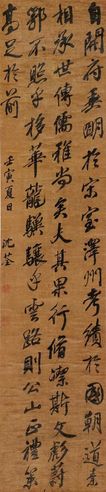 自開府明於宋室澤州考績於國朝道素
相承世傳儒雅尚矣夫其果行脩潔斯文彪蔚
鄂不照乎移華龍驥驤乎雲路則公山正禮策
高足於前
壬寅夏日 沈荃